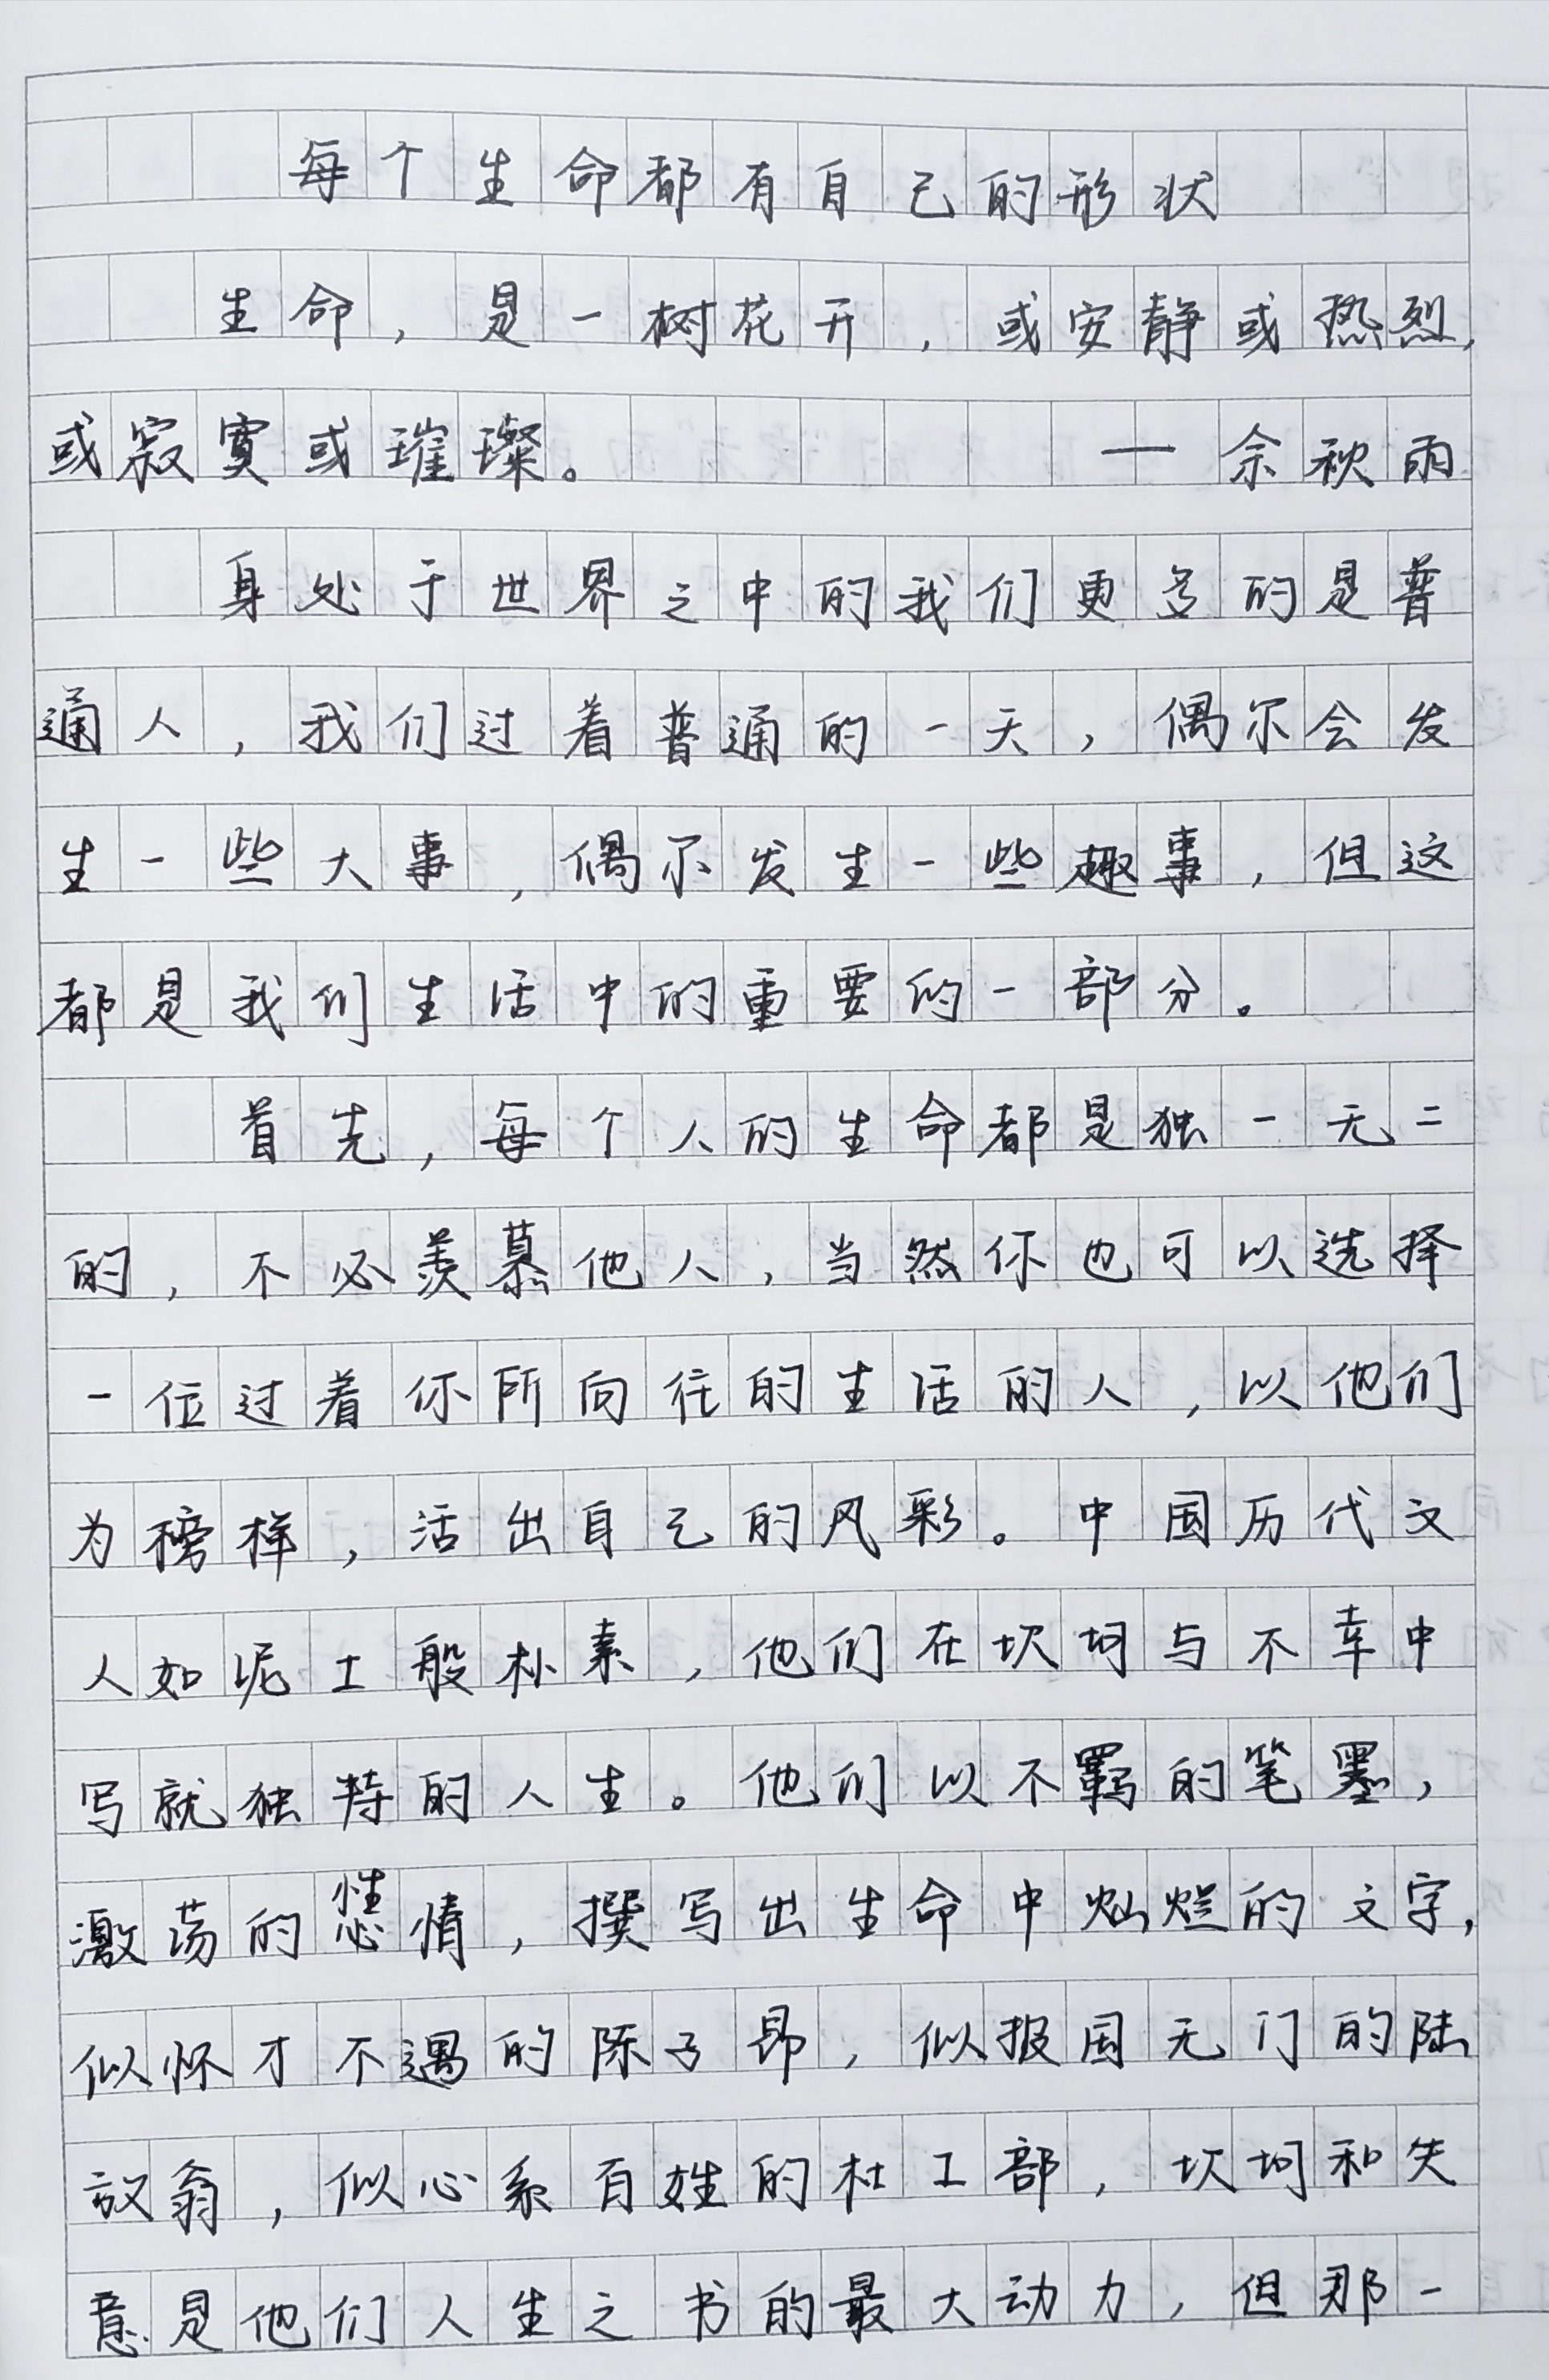 每个生命都有自己的形状
生命，是一树花开，或安静或热烈，
或寂寞或璀璨。——余秋雨
身处于世界之中的我们更多的是普
通人，我们过着普通的一天，偶尔会发
生一些大事，偶尔发生一些趣事，但这
都是我们生活中的重要的一部分。
首先，每个人的生命都是独一无二
的，不必羡慕他人，当然你也可以选择
一位过着你所向往的生活的人，以他们
为榜样，活出自己的风彩。中国历代文
人如泥土般朴素，他们在坎坷与不幸中
写就独特的人生。他们以不羁的笔墨，
激荡的情，撰写出生命中灿烂的文字，
似怀才不遇的陈子昂，似报国无门的陆
放翁，似心系百姓的杜工部，坎坷和失
意是他们人生之书的最大动力，但那一